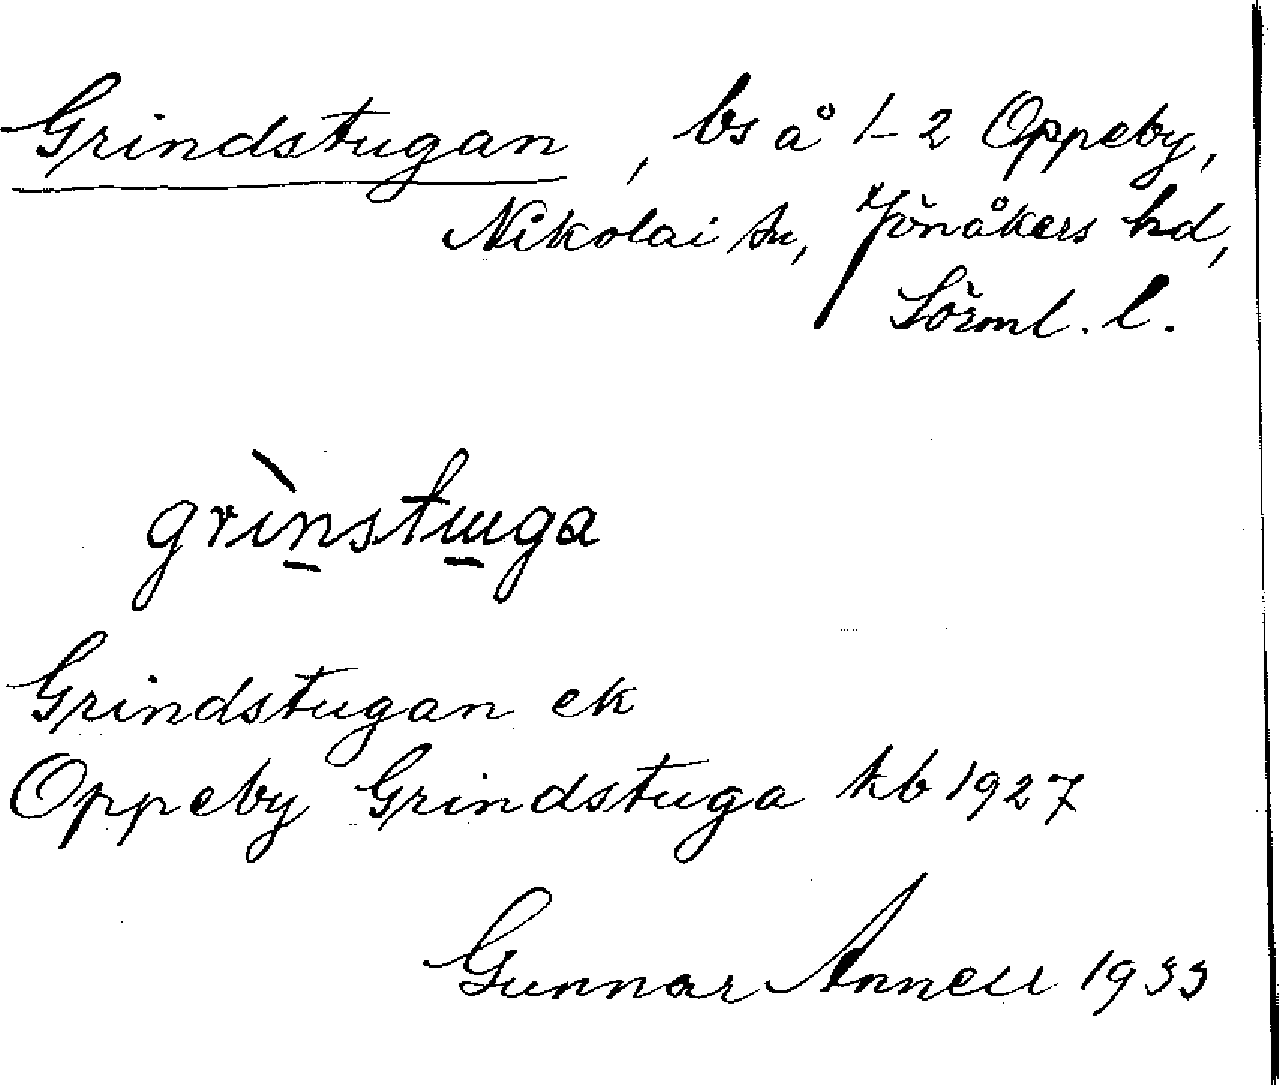 Grindstugan, bs å 1-2 Oppeby,
Nikolai sn, Jönåkers hd,
Sörml. l.
grìnstuga
Grindstugan ek
Oppeby Grindstuga kb 1927
Gunnar Annell 1933